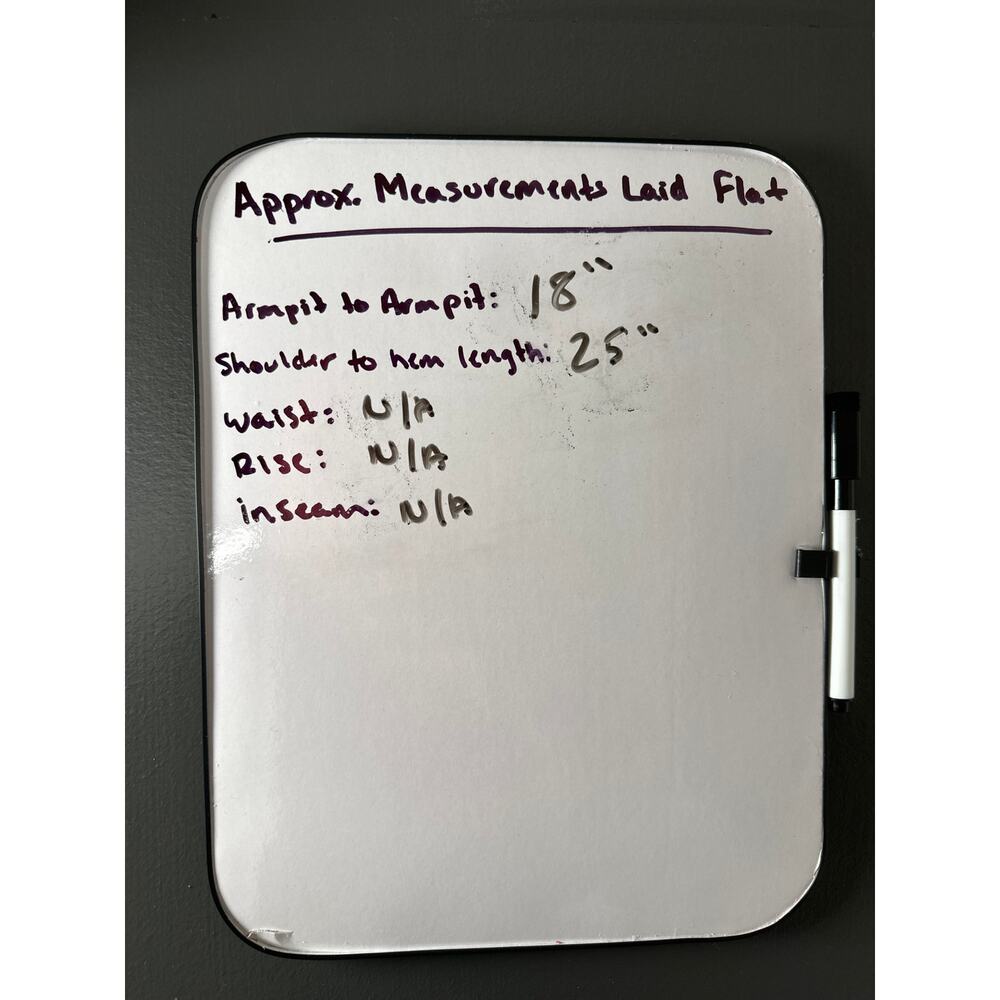 Approx. Measurements Laid Flat
Armpit to Armpit: 18"
Shoulder to hem length: 25"
waist: N/A
Rise: N/A
inseam: N/A